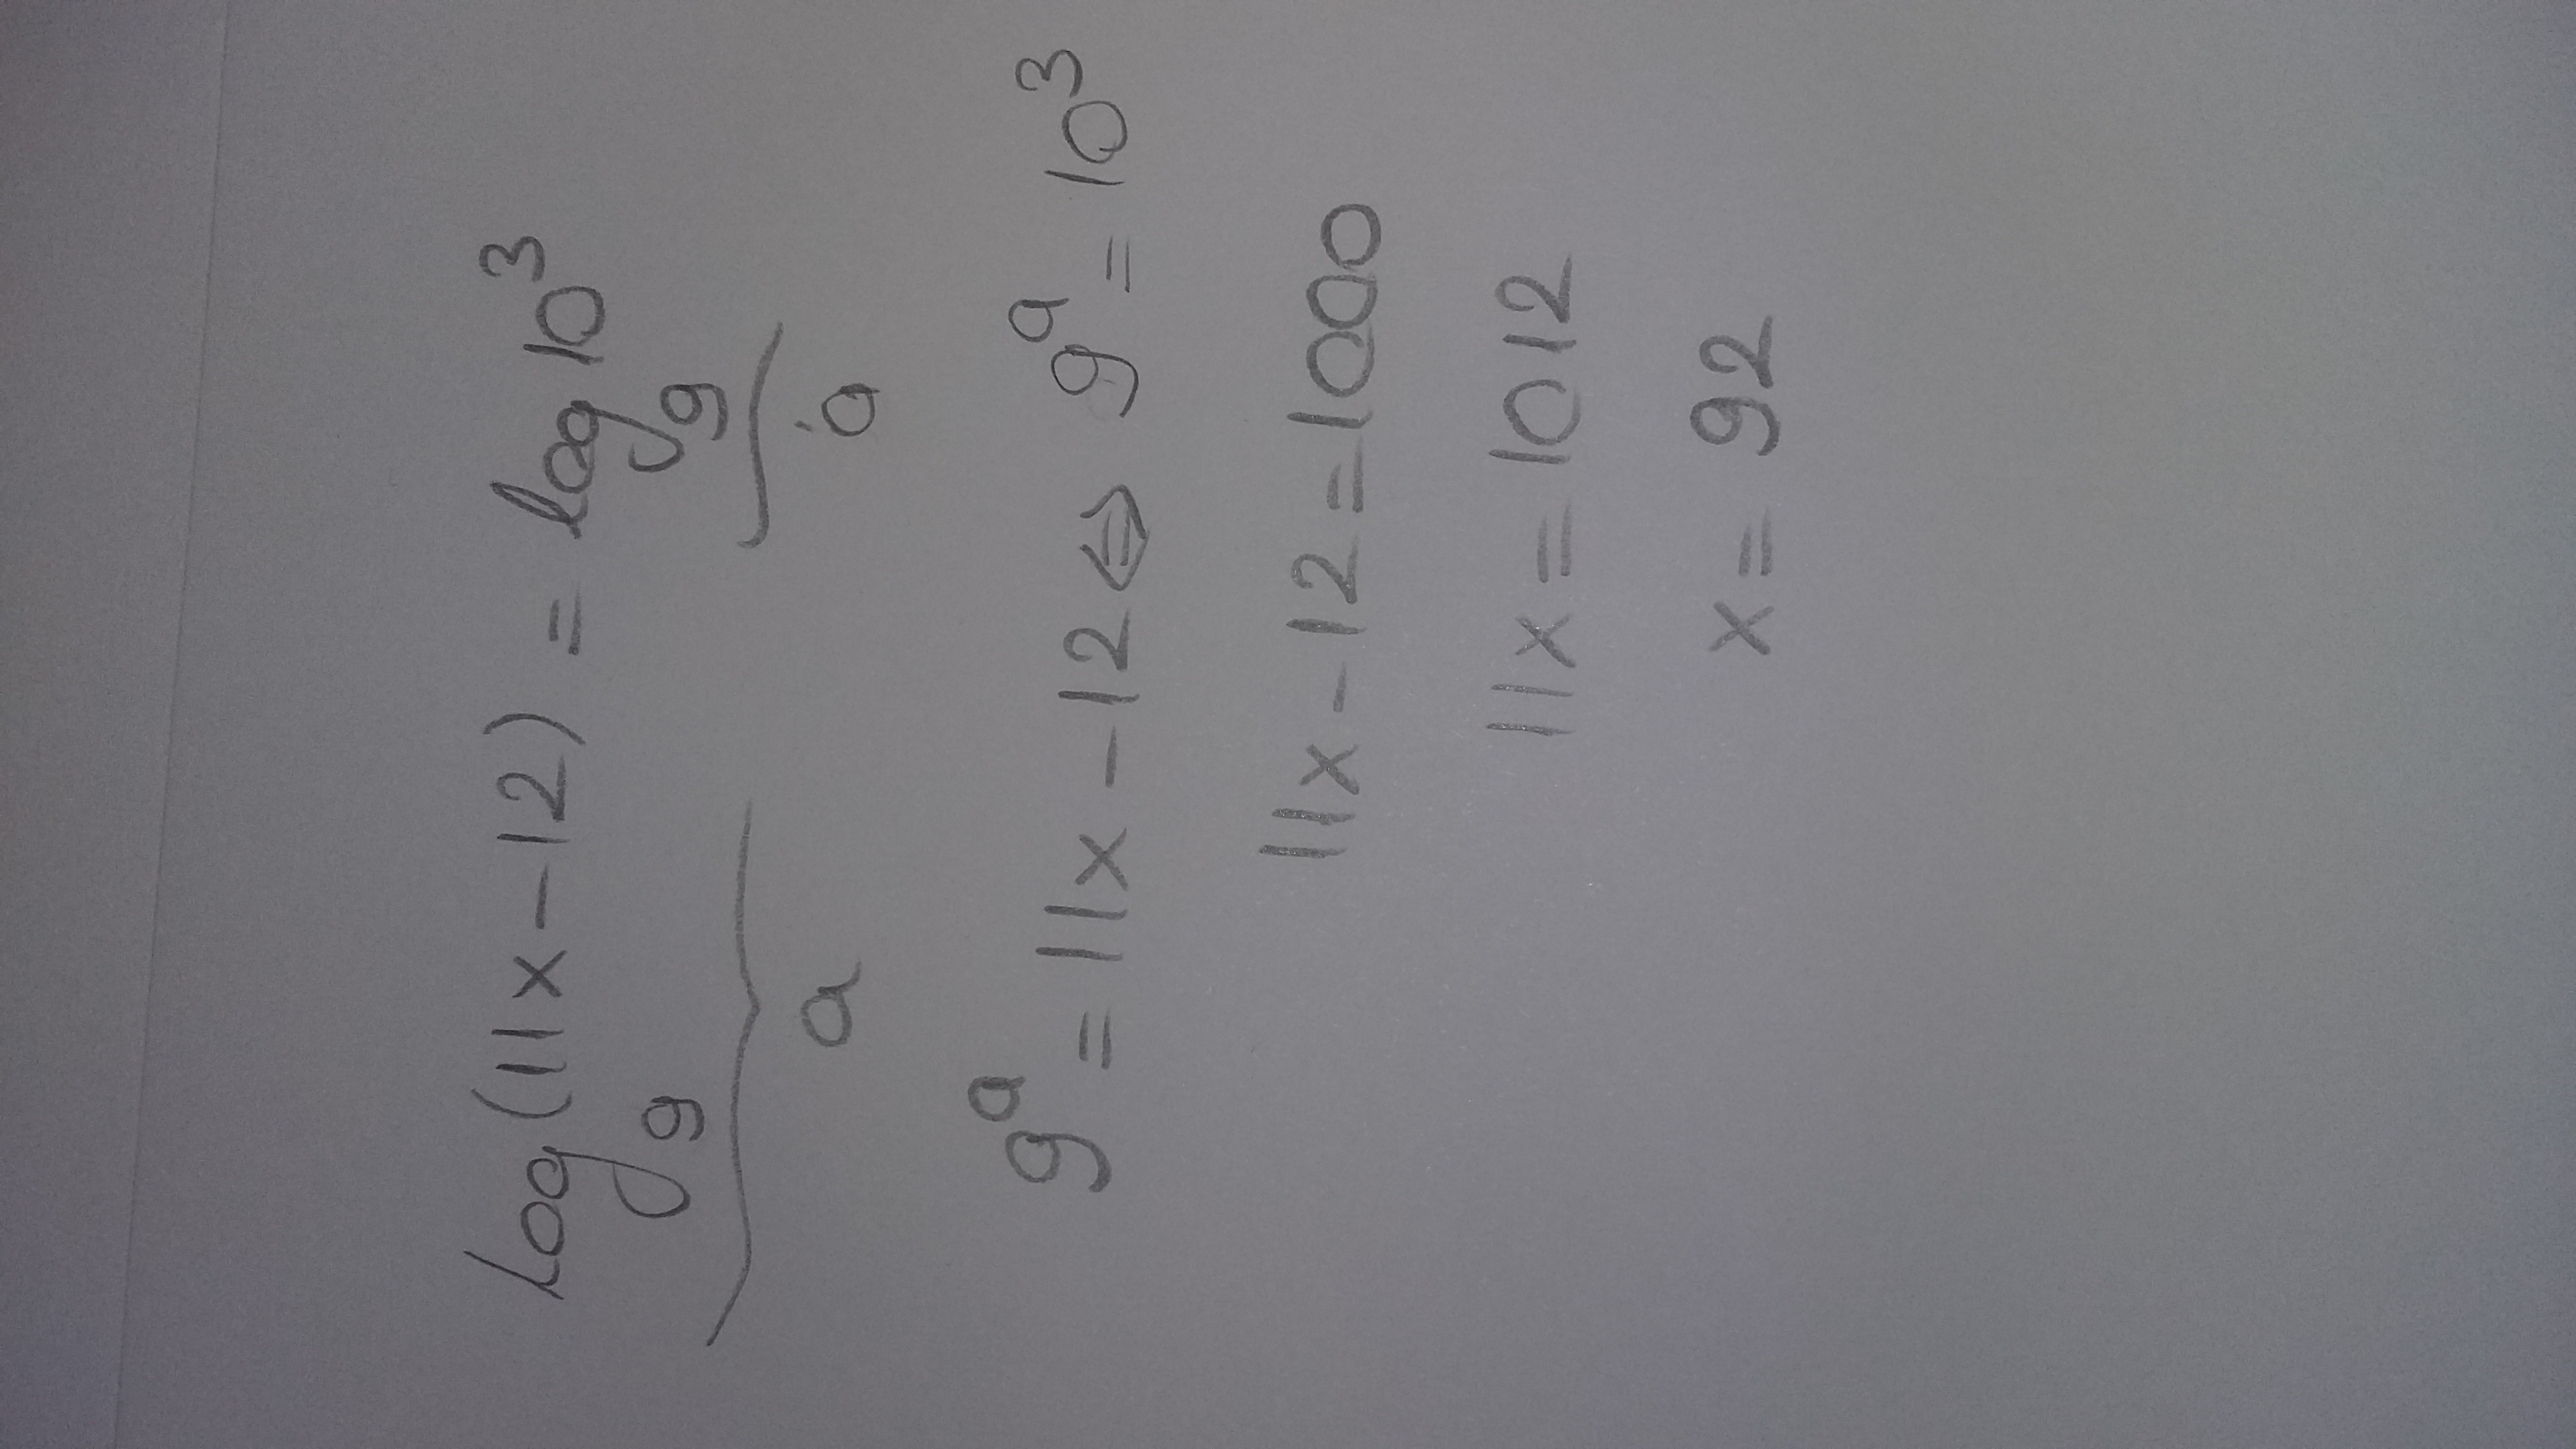 log₉(11x-12) = log₉10³
a a
9ᵃ = 11x-12 ⇔ 9ᵃ = 10³
11x-12=1000
11x = 1012
x = 92